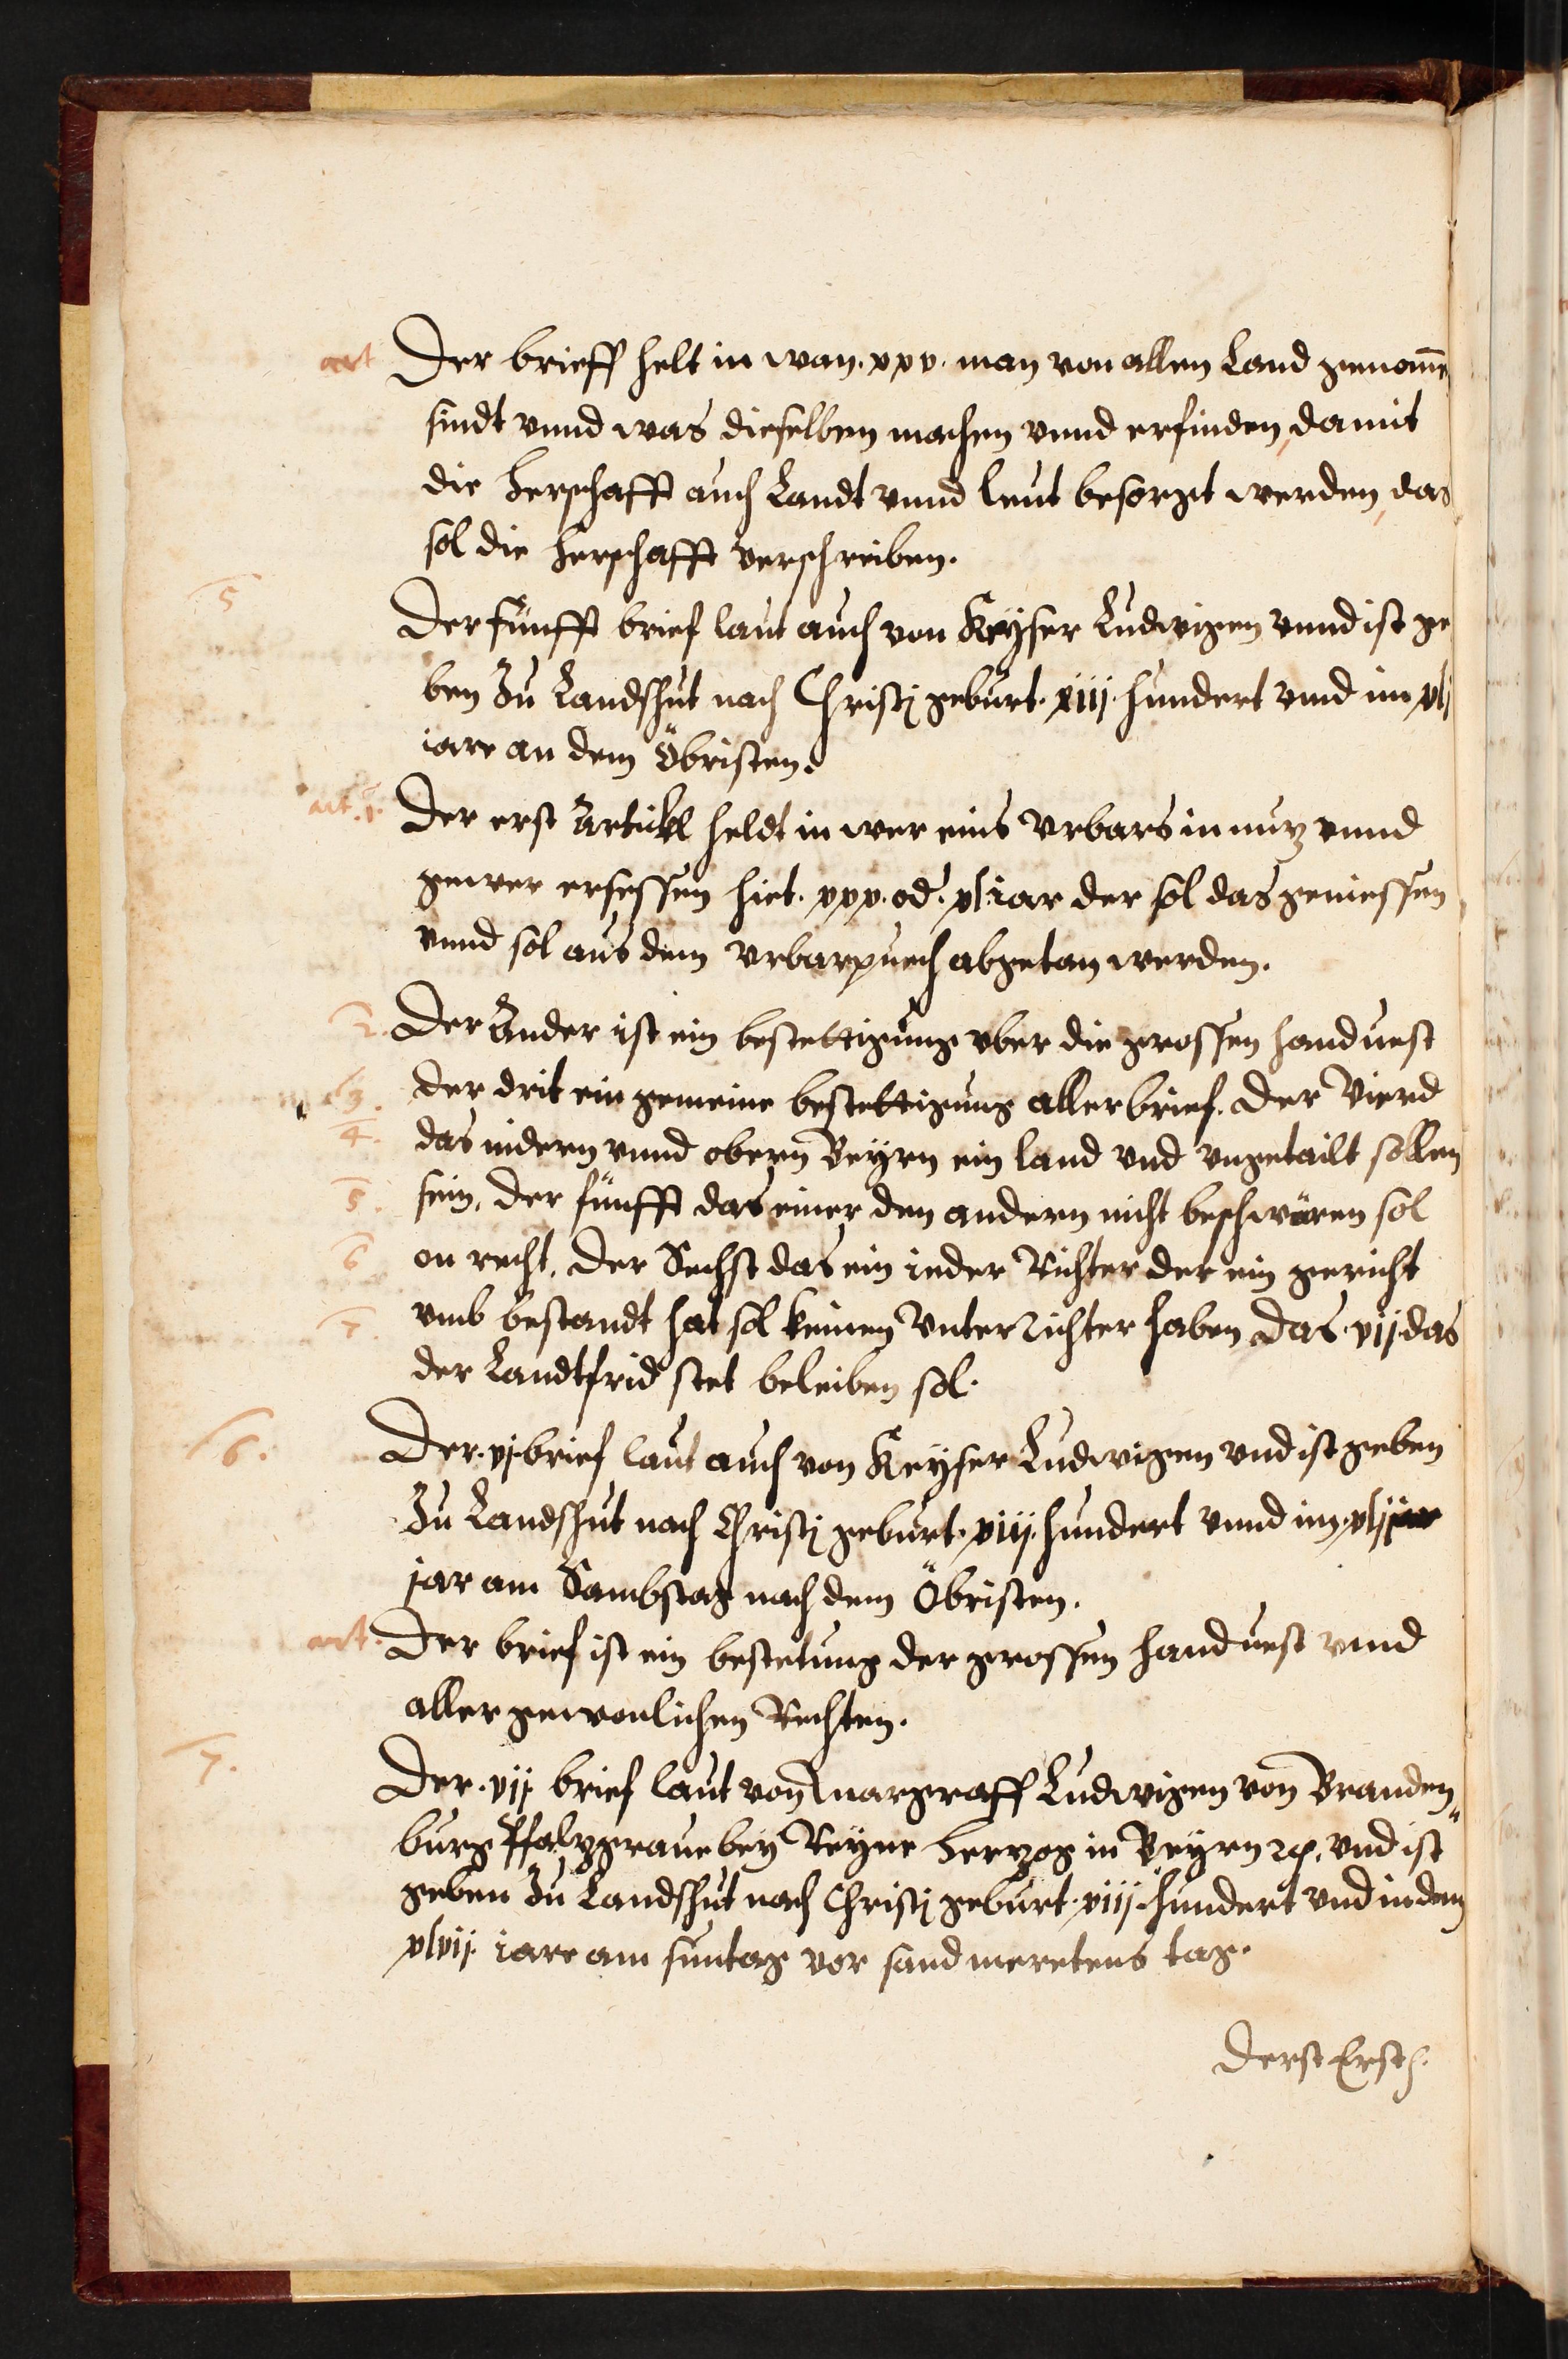 art Der brieff helt in wan .xxv. man von allem Land genom̄e
sindt vnnd was dieselben machen vnnd erfinden, damit
die herschafft auch Landt vnnd leut besorgt werden, das
sol die herschafft verschreiben.
5 Der fünfft brief laut auch von Keyser Ludwigen vnnd ist ge
ben Zu Landshut nach Christj geburt. xiij. hundert vnnd im xlj
iare an dem Öbristen.
art. 1. Der erst Artickl heldt in wer eins Vrbars in nutz vnnd
gewer ersessen hiet. xxx. od. xl. iar der sol das geniessen
vnnd sol aus dem Vrbarpuech abgetan werden.
2. Der Ander ist ein bestettigung vber die grossen handuest
3. der drit ein gemeine bestettigung aller brief. Der Vierd
4. das nidern vnnd obern Beyrn ein land vnd vngetailt sollen
5. sein. Der fünfft das einer den andern nicht beschwären sol
6 on recht. Der Sechst das ein ieder Richter der ein gericht
7. vmb bestandt hat sol keinen Vnter Richter haben Das .vij. das
der Landtfrid stet beleiben sol.
6. Der .vj. brief laut auch von Keyser Ludwigen vnd ist geben
Zu Landshut nach Christj geburt. xiij. hundert vnnd im. xlj
jar am Sambstag nach dem Öbristen.
art. Der brief ist ein bestetung der grossen handuest vnnd
aller gewonlichen Rechten.
7. Der .vij. brief laut von Margraff Ludwigen von Branden„
burg Pfaltzgraue bey Reyne Hertzog in Beyrn ꝛc. vnd ist
geben Zu Landshut nach Christj geburt. xiij. hundert vnd in dem
xlvij. iare am suntag vor sand meretens tag.
Der st Erst.